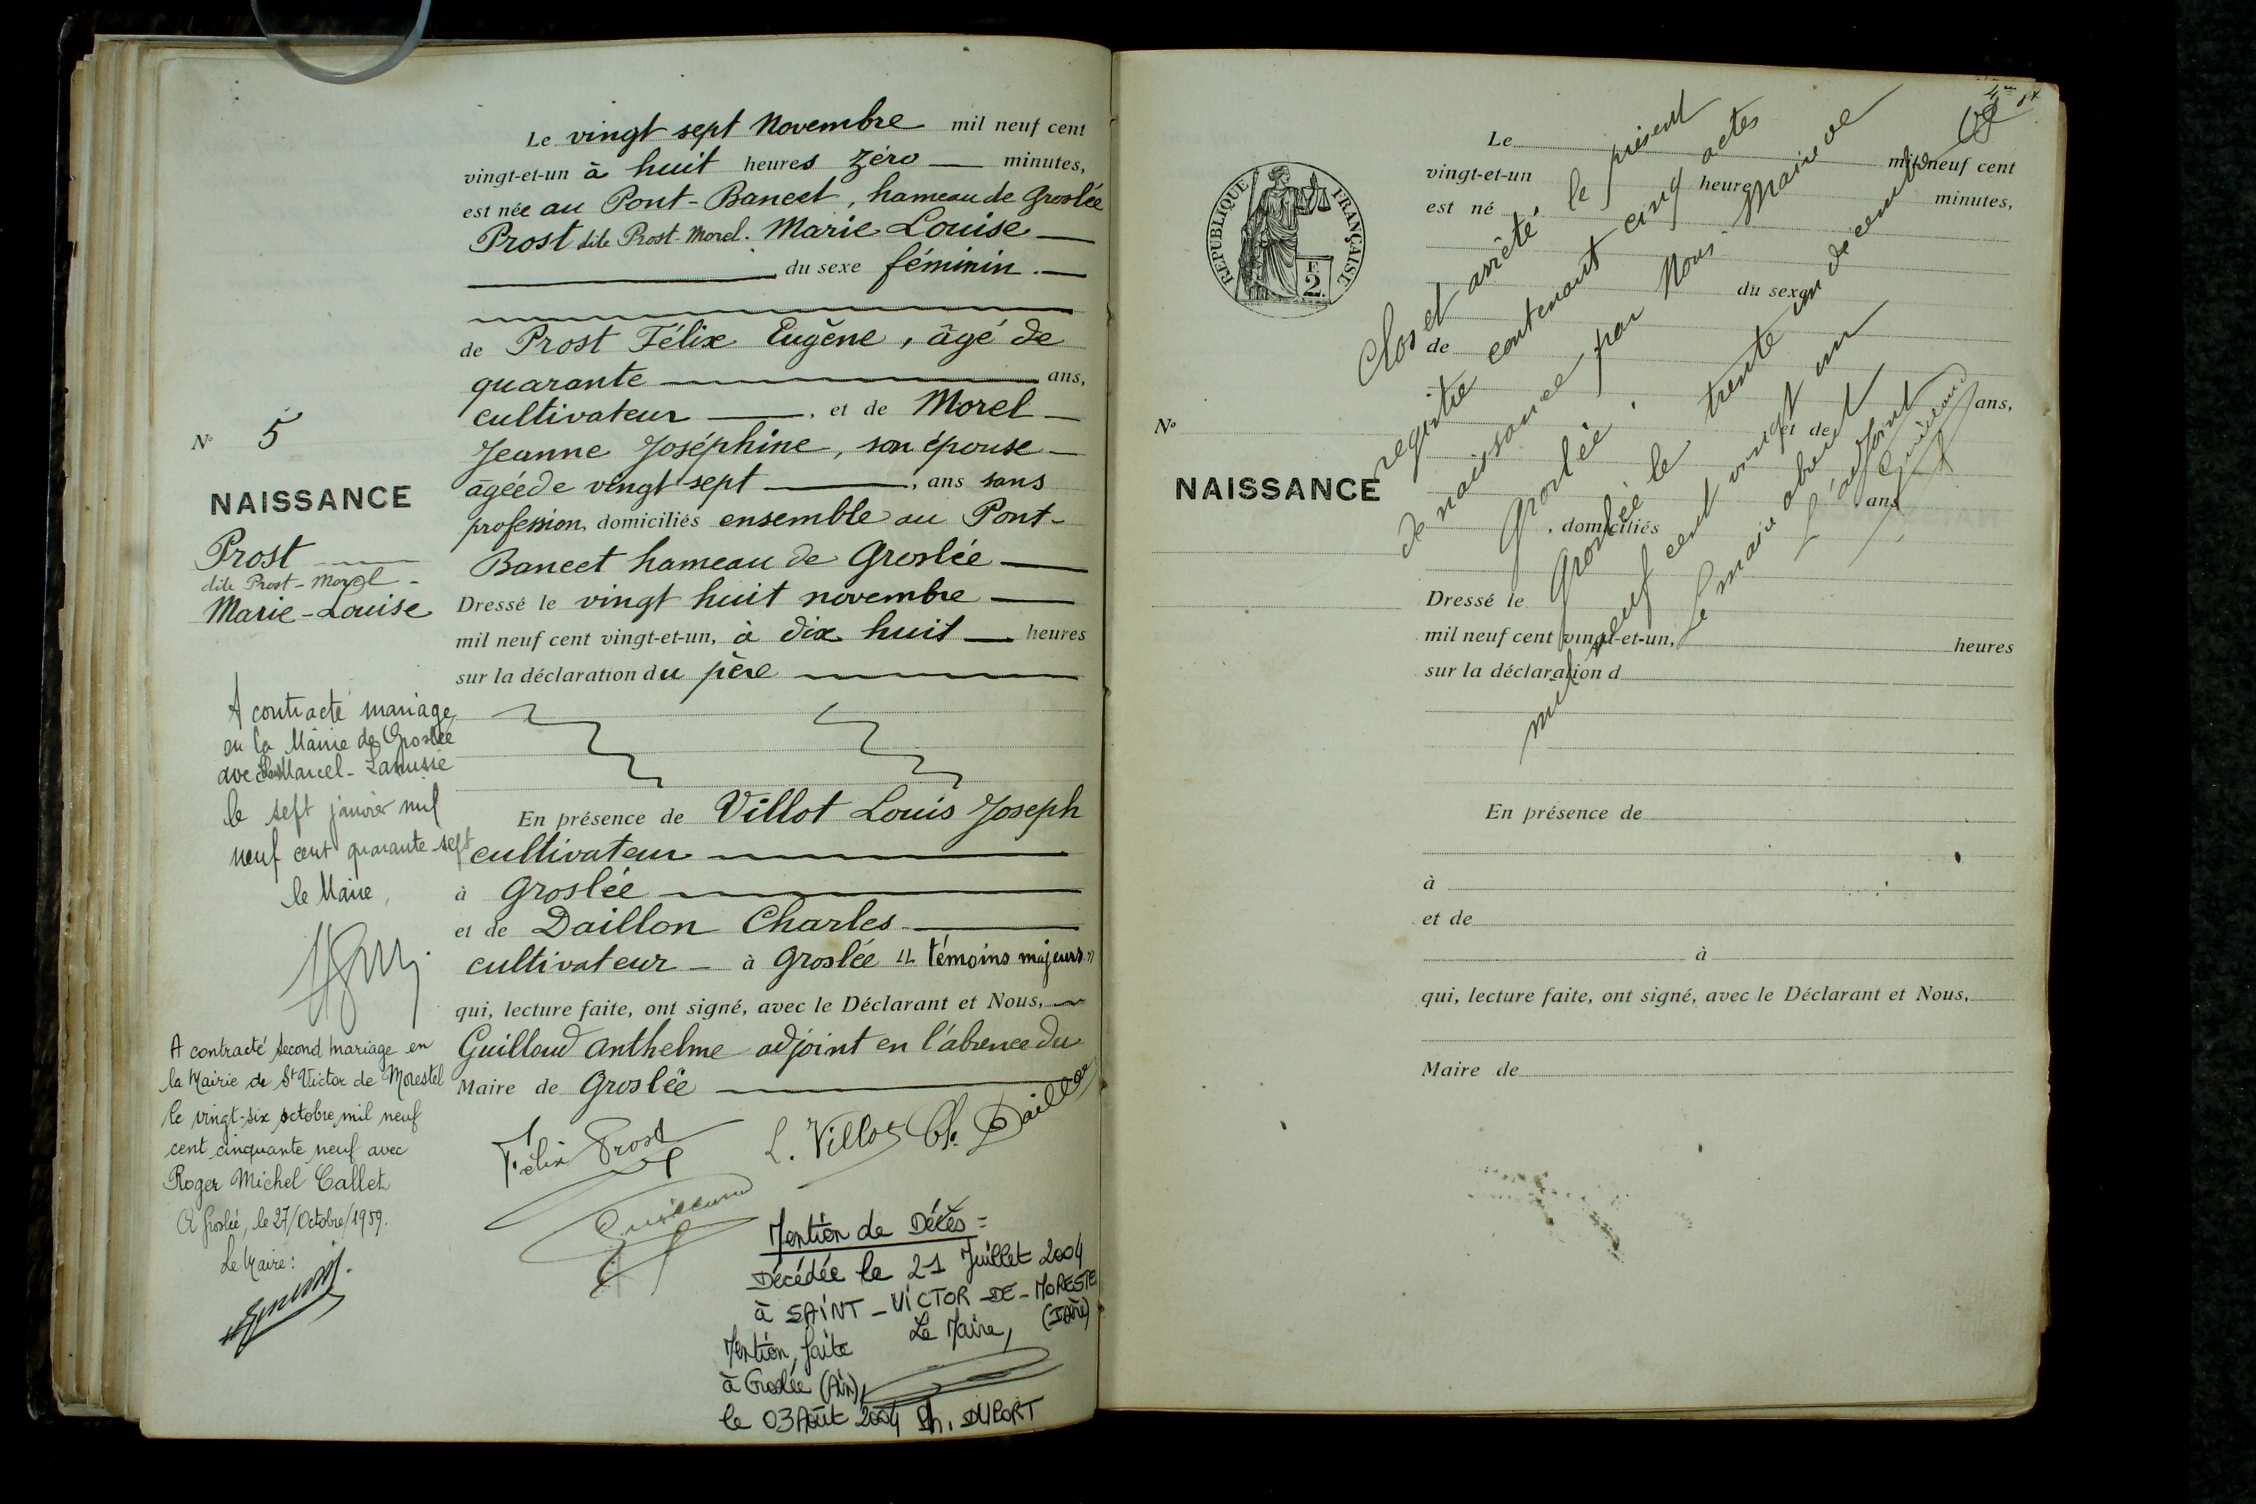 Le vingt sept Novembre mil neuf cent
vingt-et-un à huit heures zéro minutes,
est née au Pont-Bancet, hameau de Groslée
Prost dite Prost-Morel. Marie Louise
du sexe féminin.
de Prost Félix Eugène, âgé de
quarante ans,
cultivateur, et de Morel
Jeanne Joséphine, son épouse
âgée de vingt sept, ans sans
profession, domiciliés ensemble au Pont-
Bancet hameau de Groslée
Dressé le vingt huit novembre
mil neuf cent vingt-et-un, à dix huit heures
sur la déclaration du père
En présence de Villot Louis Joseph
cultivateur
à Groslée
et de Daillon Charles
cultivateur à Groslée "témoins majeurs"
qui, lecture faite, ont signé, avec le Déclarant et Nous,
Guilloud Anthelme adjoint en l'absence du
Maire de Groslée
Félix Prost L. Villot Ch. Daillon
Guilloud
Mention de Décès =
Décédée le 21 Juillet 2004
à SAINT-VICTOR-DE-MORESTEL
(Isère)
Mention faite Le Maire,
à Groslée (Ain),
le 03 Août 2004 Ph. DUPORT
No 5
NAISSANCE
Prost
dite Prost-Morel
Marie-Louise
A contracté mariage
en la Mairie de Groslée
avec Marcel
le sept janvier mil
neuf cent quarante-sept
le Maire,
A contracté second mariage en
la Mairie de St Victor de Morestel
le vingt-six octobre mil neuf
cent cinquante neuf avec
Roger Michel Callet
A Groslée, le 27/Octobre/1959.
Le Maire:
RÉPUBLIQUE FRANÇAISE
E
2.
No
NAISSANCE
Le mil neuf cent
vingt-et-un heure minutes,
est né
du sexe
de
ans,
et de
ans
, domiciliés
Dressé le
mil neuf cent vingt-et-un, heures
sur la déclaration d
En présence de
à
et de
à
qui, lecture faite, ont signé, avec le Déclarant et Nous,
Maire de
Clos et arrêté le présent
registre contenant cinq actes
de naissance par Nous Maire de
Groslée.
Groslée le trente un décembre
mil neuf cent vingt un
Le maire absent
L'adjoint
Guilloud